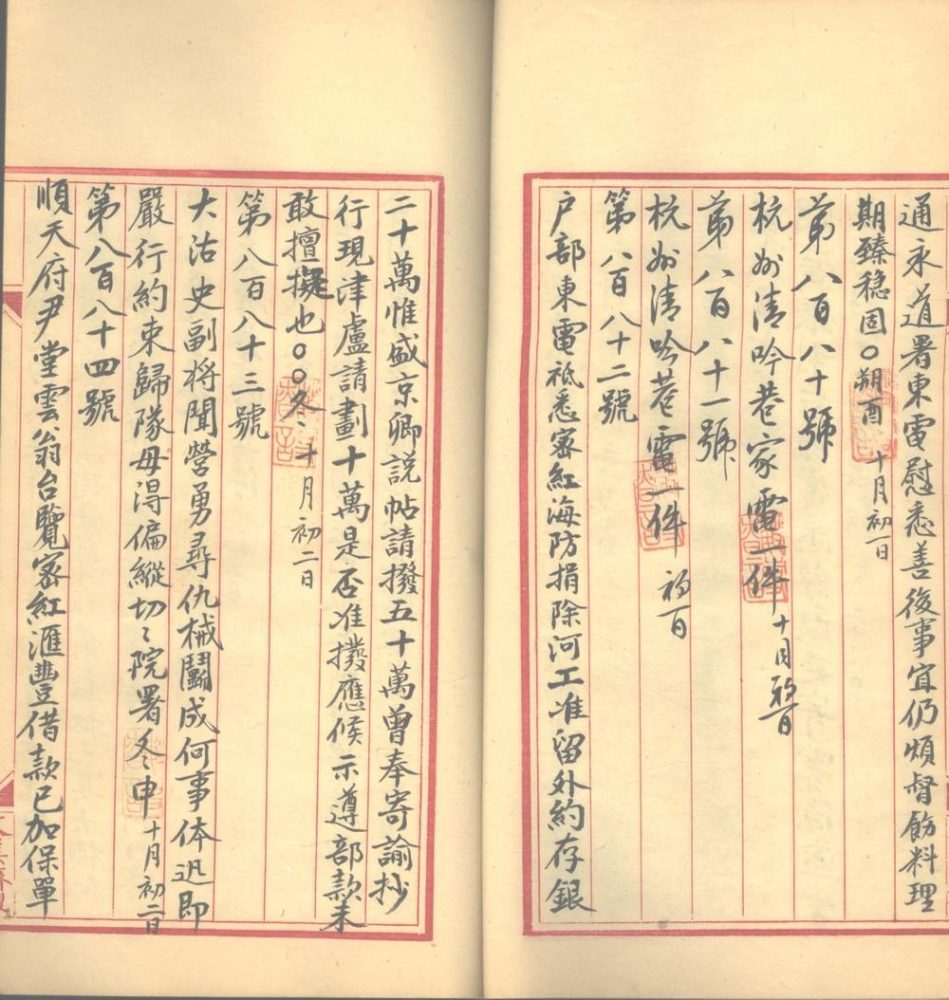 通永道署東電慰悉善後事宜仍煩督飭料理
期臻穩固〇朔酉 十月初一日
第八百八十號
杭州清吟巷家電一件 十月初一日
第八百八十一號
杭州清吟巷電一件 初一日
第八百八十二號
户部東電祗悉密紅海防捐除河工准留外約存銀
二十萬惟盛京卿説帖請撥五十萬曾奉寄諭抄
行現津盧請劃十萬是否准撥應候示遵部款未
敢擅擬也〇〇冬、十月初二日
第八百八十三號
大沽史副将聞營勇尋仇械鬭成何事体迅即
嚴行約束歸隊毋淂偏縱切〻院署冬申 十月初二日
第八百八十四號
順天府尹堂雲翁台覽密紅滙豐借款已加保單